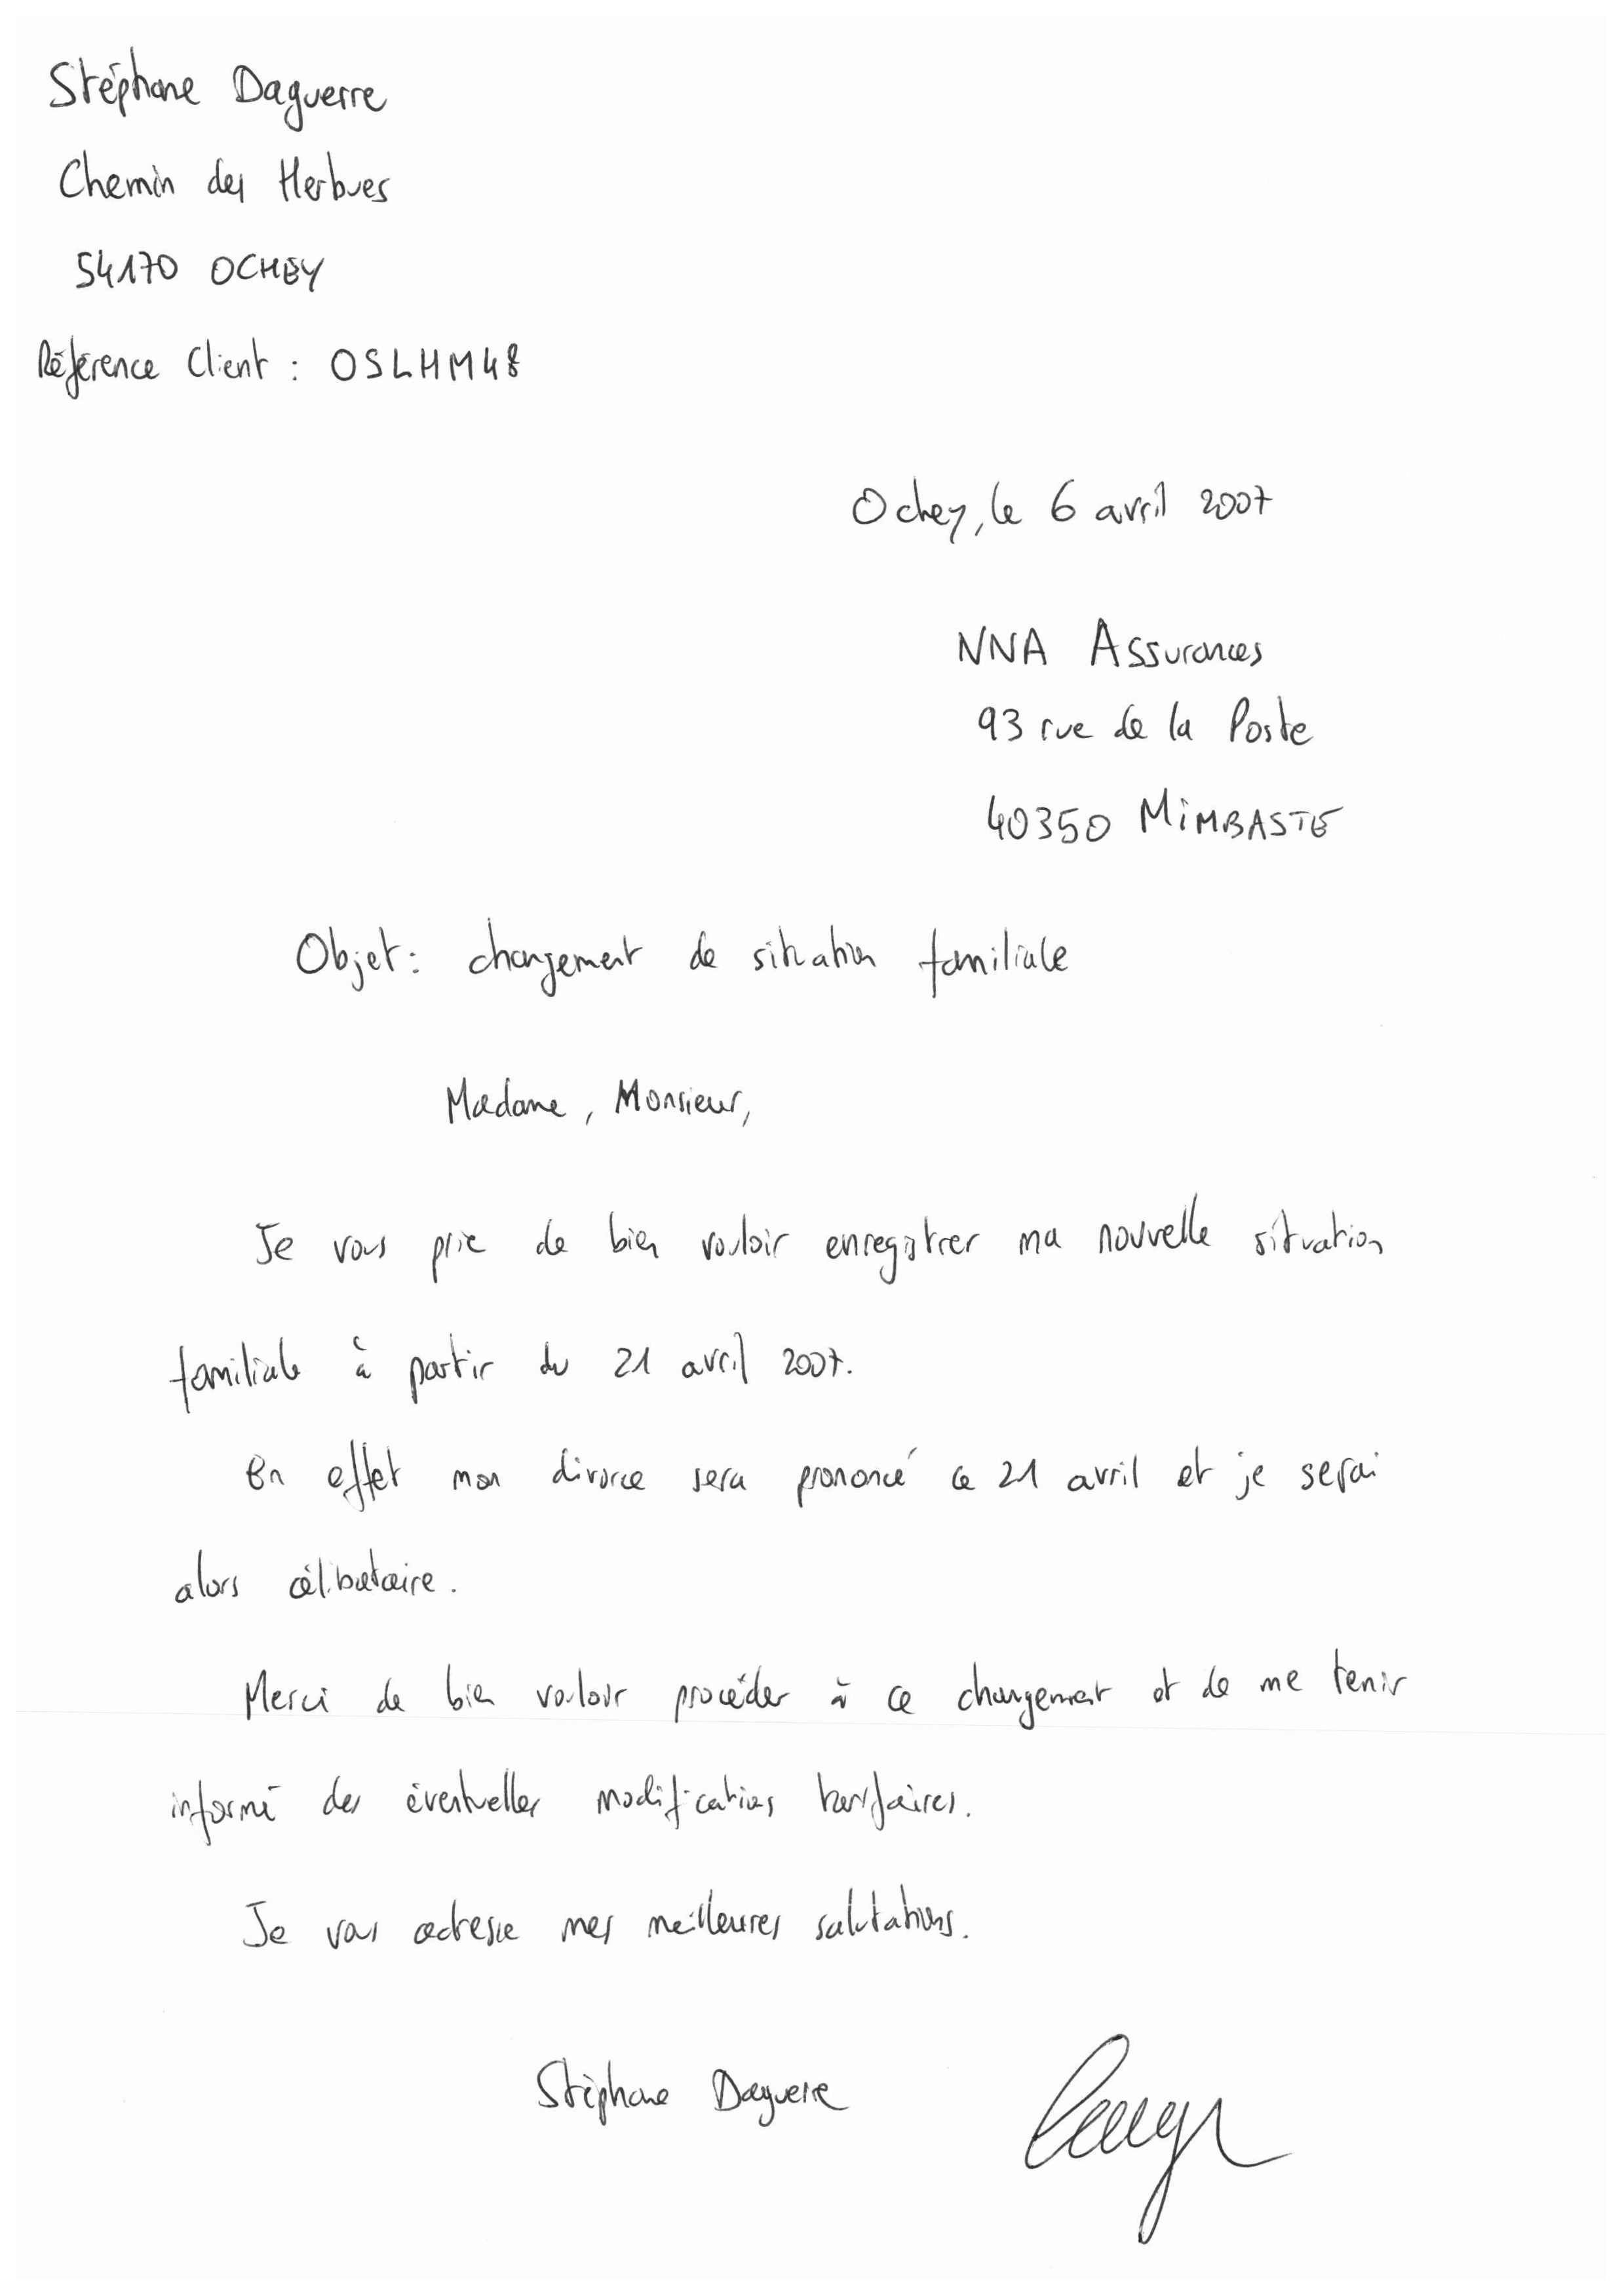 Stéphane Daguerre
Chemin des Herbues
54170 OCHEY
Référence Client : OSLHM48
Ochey, le 6 avril 2007
NNA Assurances
93 rue de la Poste
40350 MIMBASTE
Objet : changement de situation familiale
Madame, Monsieur,
Je vous prie de bien vouloir enregistrer ma nouvelle situation
familiale à partir du 21 avril 2007.
En effet mon divorce sera prononcé ce 21 avril et je serai
alors célibataire.
Merci de bien vouloir procéder à ce changement et de me tenir
informé des éventuelles modifications tarifaires.
Je vous adresse mes meilleures salutations.
Stéphane Daguerre